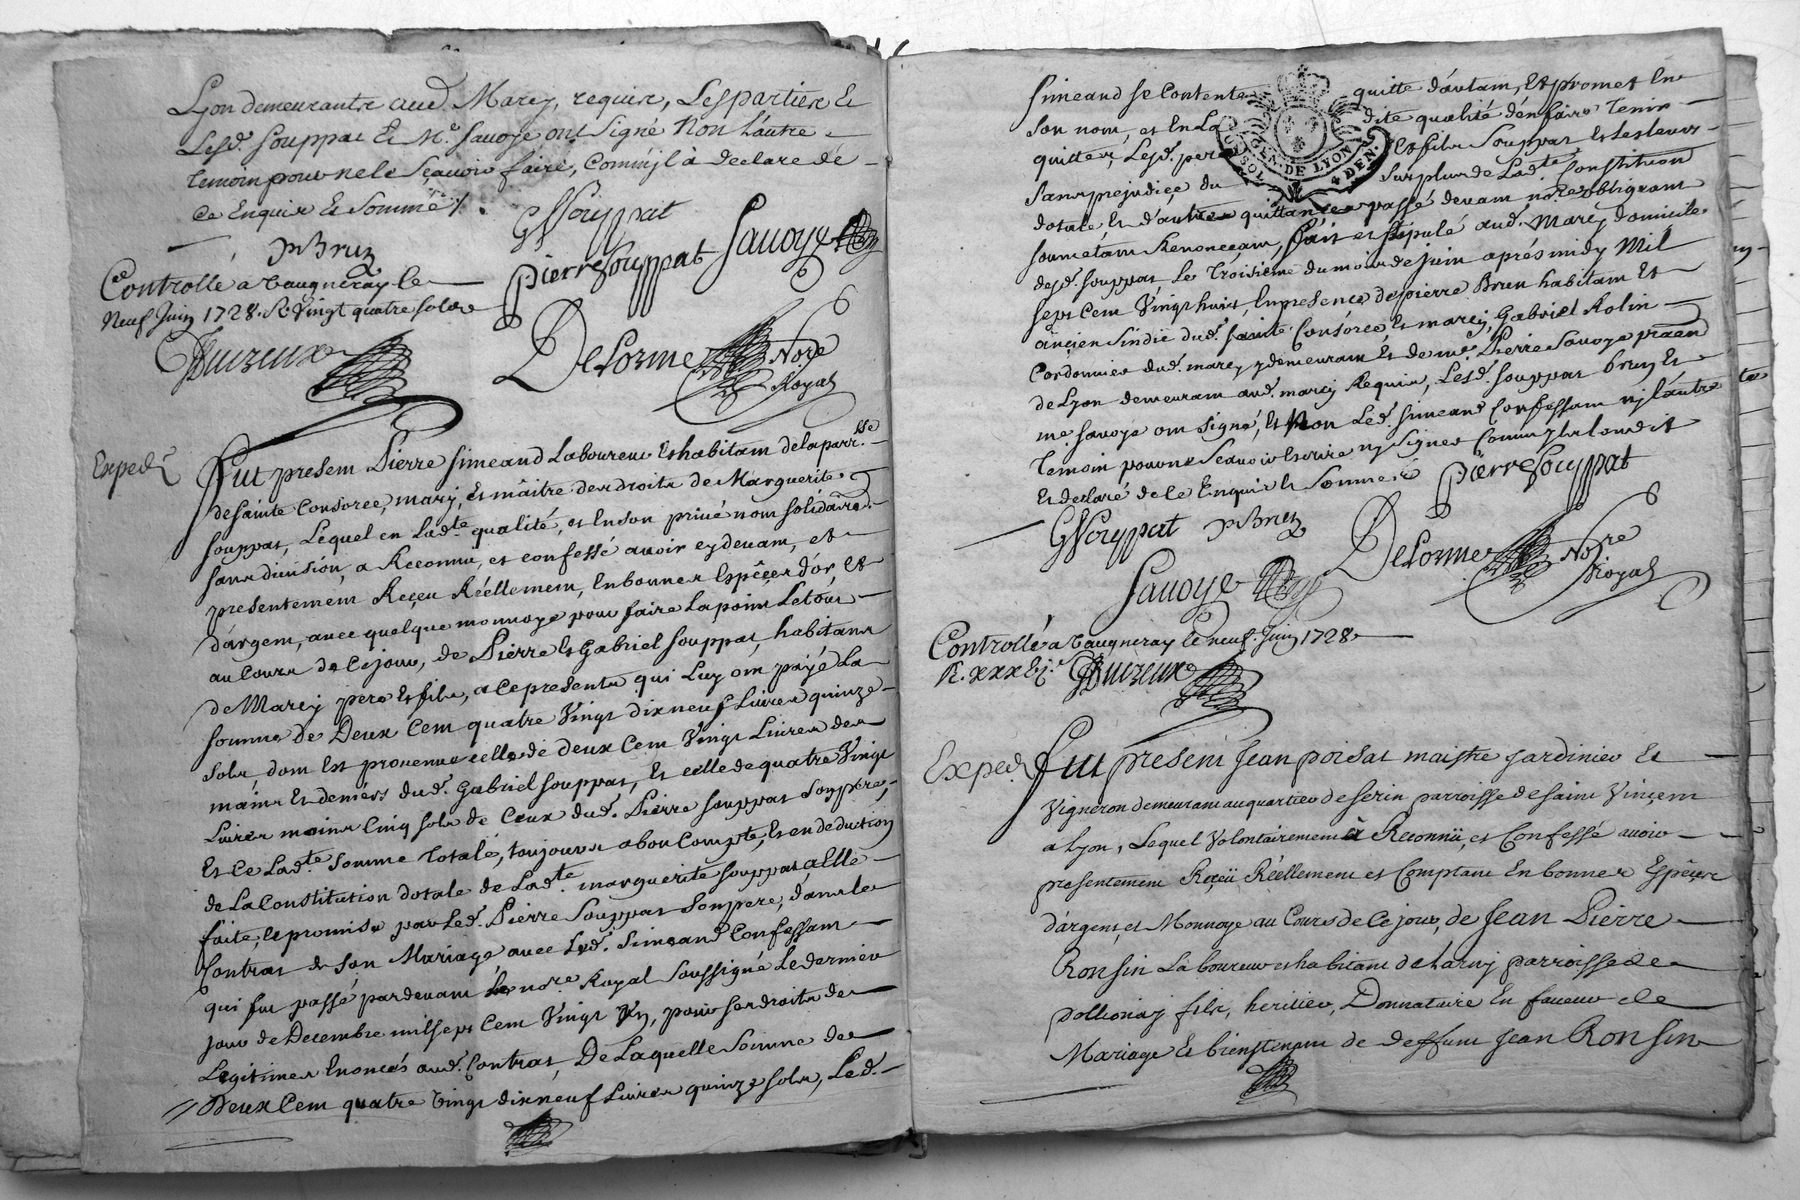 Lyon demeurants aud. Marcy, requis, Les parties Et
Lesd. Souppat Et Me. Sauoye ont Signé Non L'autre
temoin pour ne le Sçauoir faire, Comm'jl à declaré de
ce Enquis Et Sommé /.
GSouppat
PBrun
pierre Souppat Sauoye
Controllé a Vaugneray le
neuf Juin 1728. R. Vingt quatre sols
Delorme Nore
Royal
Exped.
Fut presem Pierre Simeand Laboureur Et habitam de la parr.sse
de Sainte Consorce, mary, Et maître des droits de Marguerite
Souppat, Lequel en Lad.te qualité, et En son priué nom solidaire
sans diuision, a Reconnu, et confessé auoir cy deuam, et
presentement Reçeu Réellement, En bonnes Espéçes d'or, Et
d'argem, auec quelque monnoye pour faire L'apoint Le tout
au Cours de Ce jour, de Pierre Et Gabriel Souppat, habitans
de Marcy pere Et fils, a Ce presents qui Luy om payé La
somme de Deux Cem quatre Vingt dix neuf Liures quinze
sols, dom Est prouenue celle de deux Cem Vingt Liures des
mains Et deniers dud. Gabriel Souppat, Et celle de quatre Vingt
Liures moins Cinq sols de Ceux dud. Pierre Souppat Son pere,
Et Ce Lad.te Somme totale, toujours a bon Compte, Et en deduction
de La Constitution dotale de Lad.te marguerite Souppat a Elle
faite, Et promise par Led. Pierre Souppat Son pere, dans le
Contrat de son Mariage auec Led. Simeand Confessam
qui fut passé pardeuam Le nore. Royal Soussigné Le dernier
jour de Decembre mil sept Cem Vingt, pour ses droits des
Legitimes Enoncés aud. Contrat, De Laquelle Somme de
Deux Cem quatre Vingt dix neuf Liures quinze sols, Led.
Simeand Se Contente quitte d'autam, Et promet En
son nom, et En La dite qualité d'en faire tenir
quittes Lesd. pere Et fils Souppat Et les leurs
Sans prejudiçe du surplus de Lad.te Constitution
GEN. DE LYON
4 DEN.
dotale Et d'autres quittances passé deuam nore. obligeant
soumetam Renonceam, fait et stipulé aud. Marcy domicile
desd. Souppat Le troisieme du mois de juin aprés midy Mil
sept Cem Vingt huit, En presence de pierre Brun habitam Et
ançien Sindic dud. Sainte Consorce, Et marcy, Gabriel Rolin
Cordonnier dud. marcy y demeuram Et de me. Pierre Sauoye praen
de Lyon demeuram aud. marcy Requis, Lesd. Souppat brun Et
me Sauoye om signé, Et Non Led. Simeand Confessam nj L'autre
temoin pour ne Sçauoir Escrire nj signer Comm'jls L'om dit
Et declaré de le Enquis Et Sommé
pierre Souppat
GSouppat PBrun
Sauoye Delorme Nore
Royal
Controllé a Vaugneray le neuf Juin 1728
Exped.
Fut present Jean poisat maistre jardinier Et
Vigneron demeurant au quartier de Serin parroisse de Saint Vinçent
a Lyon, Lequel Volontairement à Reconnü, et Confessé auoir
presentement Reçü Réellement et Comptant En bonnes Espêçes
d'argent, et Monnoye au Cours de Ce jour, de Jean Pierre
Ronsin Laboureur et habitant de Larnj parroisse de
pollionaj fils, heritier, Donnataire En faueur de
Mariage Et bienstenant de deffunt Jean Ronsin